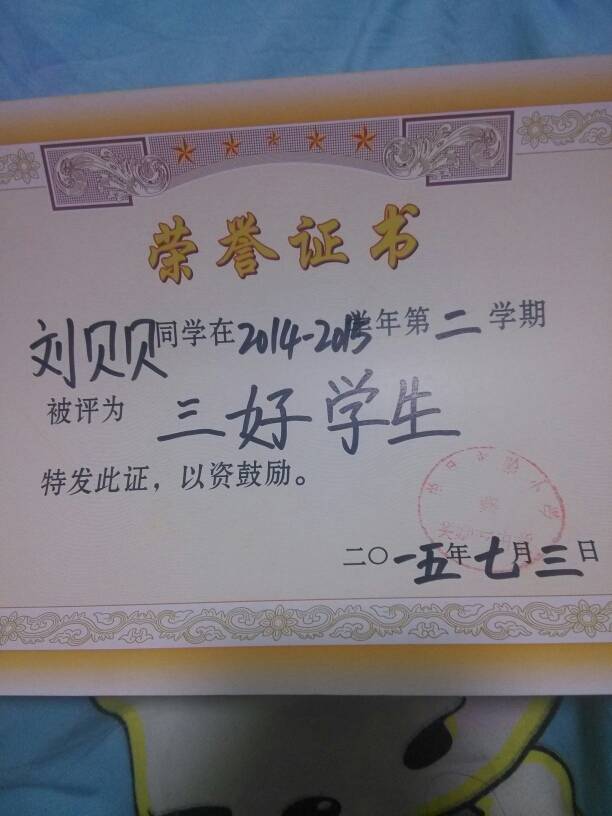 荣誉证书
刘贝贝同学在2014-2015学年第二学期
被评为 三好学生
特发此证，以资鼓励。
二〇一五年七月三日